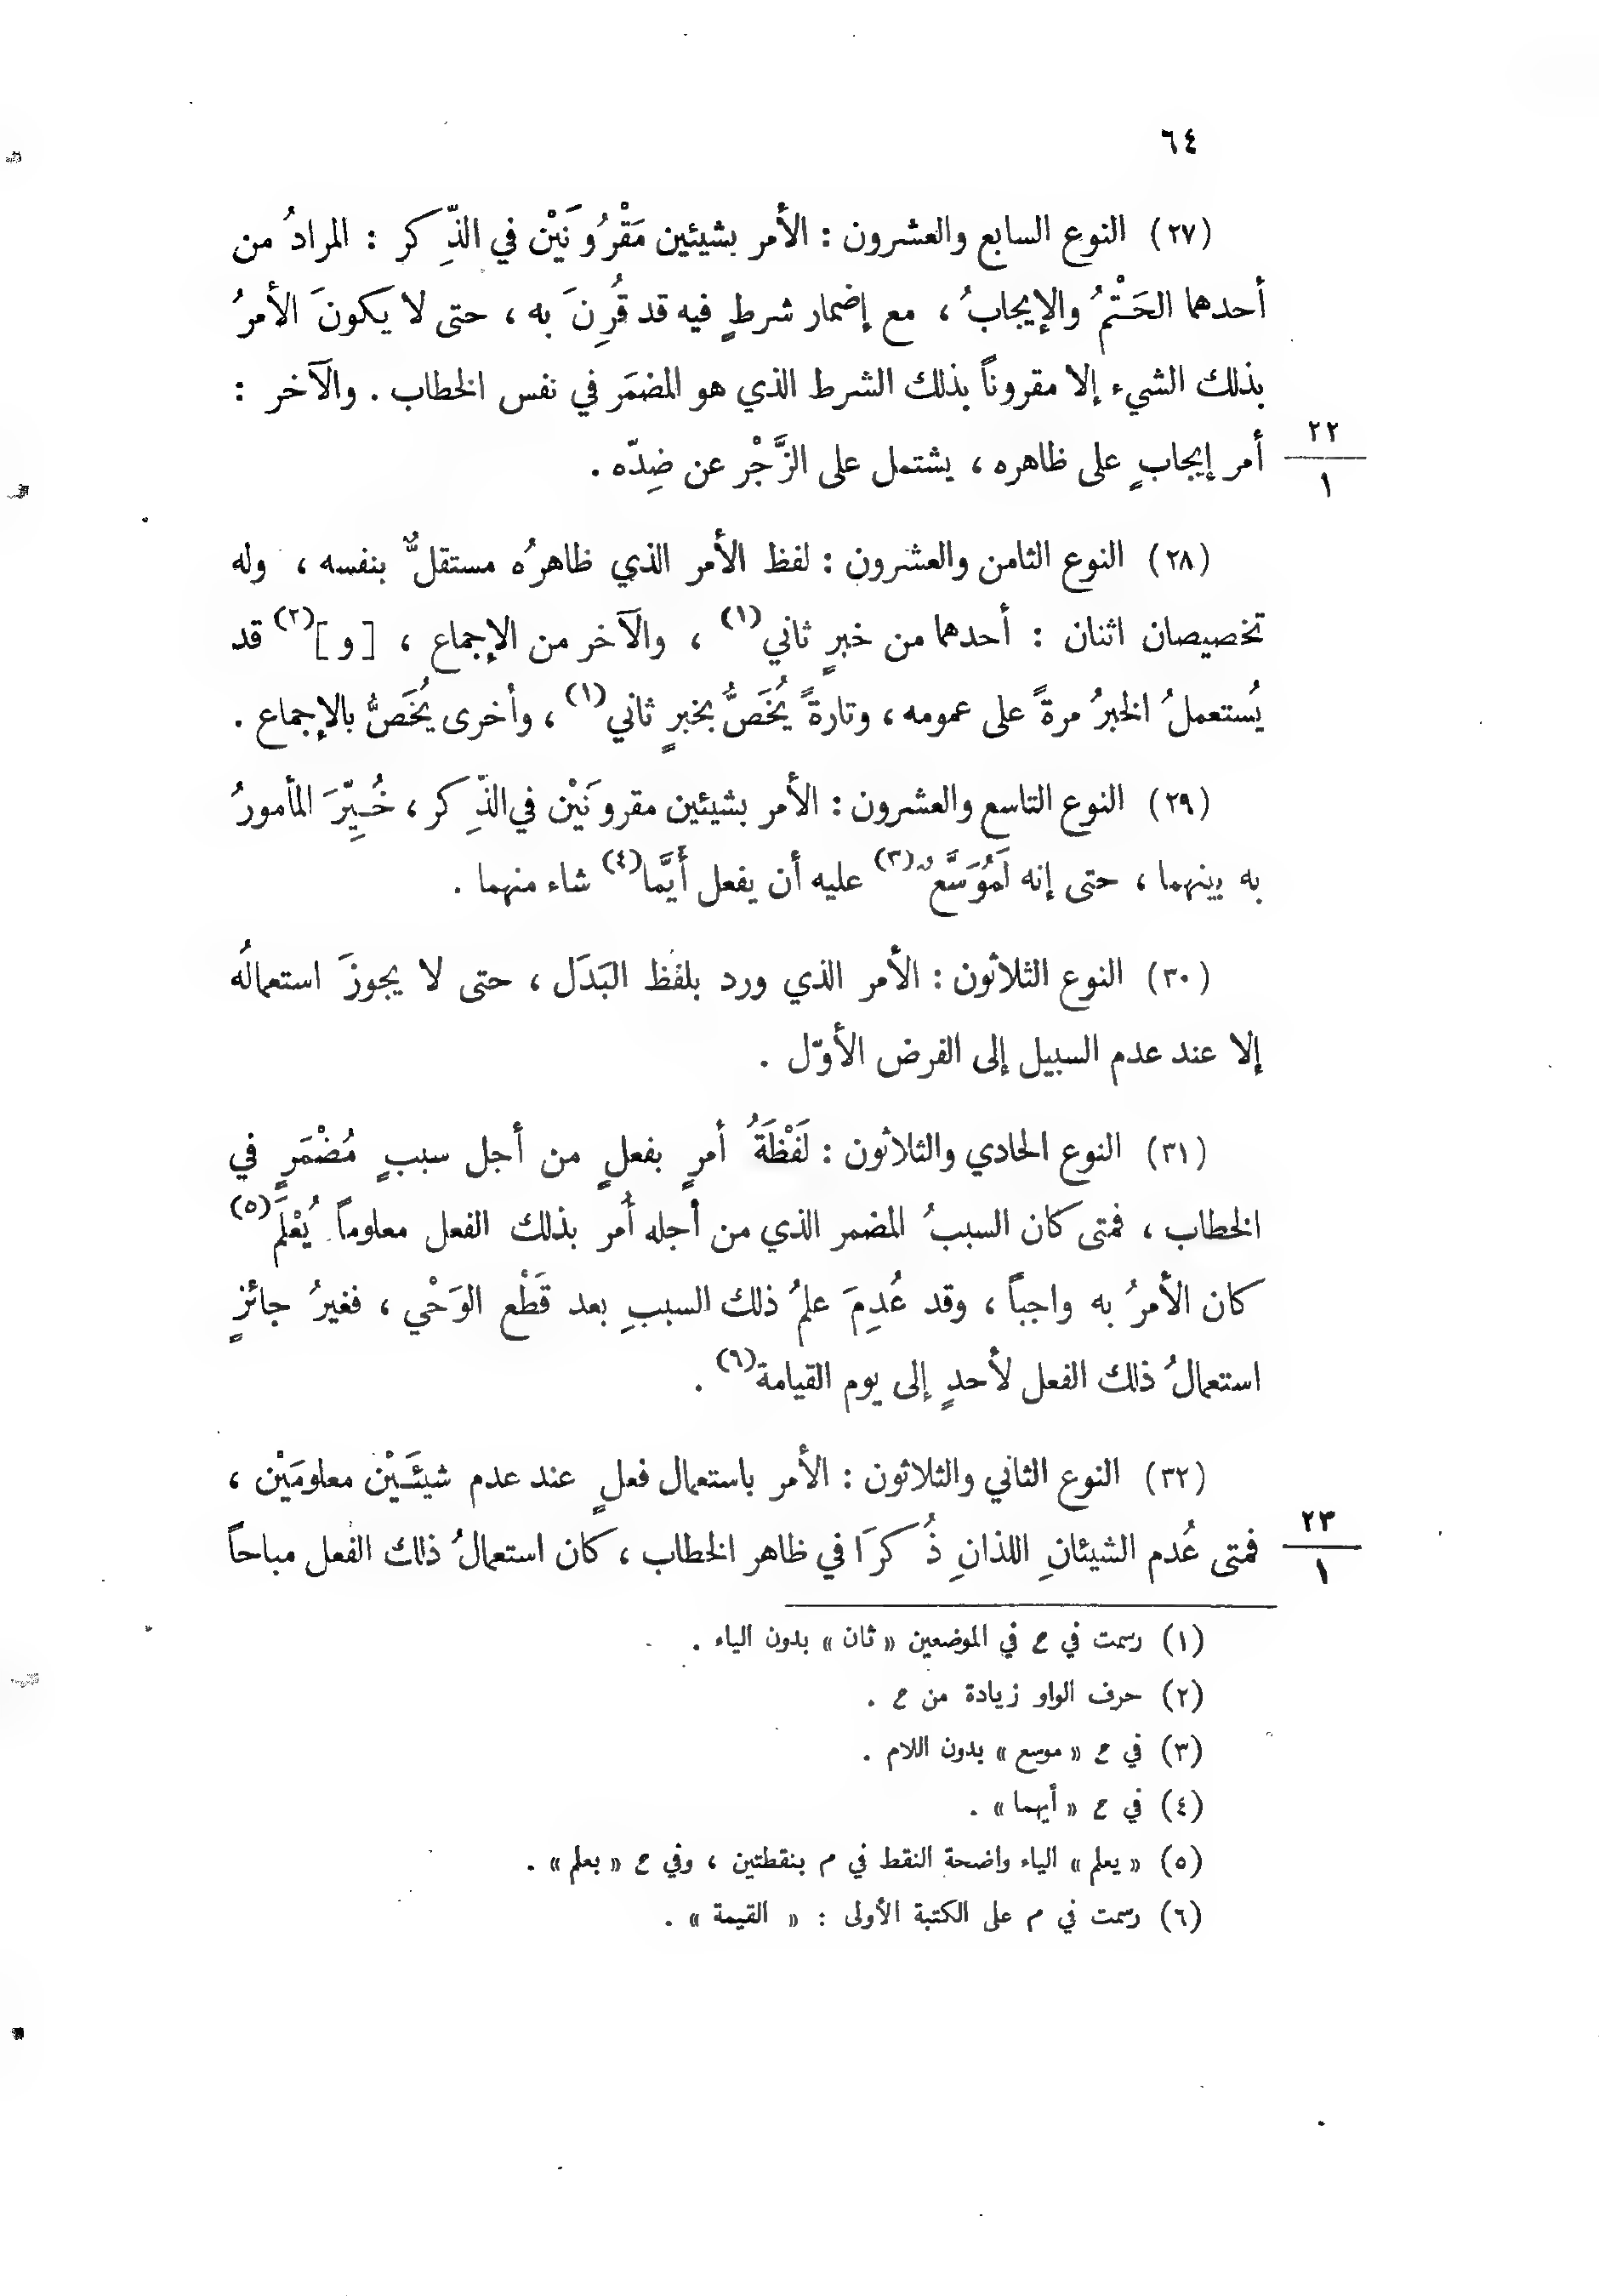 ٦٤
(٢٧) النوع السابع والعشرون : الأمر بشيئين مَقْرُونَيْن في الذِّكر : المرادُ من
أحدهما الحَتْمُ والإيجابُ ، مع إضمار شرطٍ فيه قد قُرِنَ به ، حتى لا يكونَ الأمرُ
بذلك الشيء إلا مقروناً بذلك الشرط الذي هو المضمَر في نفس الخطاب . والآخر :
أمر إيجابٍ على ظاهره ، يشتمل على الزَّجْر عن ضِدّه .
٢٢
١
(٢٨) النوع الثامن والعشرون : لفظ الأمر الذي ظاهرُه مستقلٌّ بنفسه ، وله
تخصيصان اثنان : أحدهما من خبرٍ ثاني(١) ، والآخر من الإجماع ، [و](٢) قد
يُستعملُ الخبرُ مرةً على عمومه ، وتارةً يُخَصُّ بخبرٍ ثاني(١) ، وأخرى يُخَصُّ بالإجماع .
(٢٩) النوع التاسع والعشرون : الأمر بشيئين مقرونَيْن في الذِّكر ، خُيِّرَ المأمورُ
به بينهما ، حتى إنه لَمُوَسَّعٌ(٣) عليه أن يفعل أَيَّما(٤) شاء منهما .
(٣٠) النوع الثلاثون : الأمر الذي ورد بلفظ البَدَل ، حتى لا يجوزَ استعمالُه
إلا عند عدم السبيل إلى الفرض الأوّل .
(٣١) النوع الحادي والثلاثون : لَفْظَةُ أمرٍ بفعلٍ من أجل سببٍ مُضْمَرٍ في
الخطاب ، فمتى كان السببُ المضمر الذي من أجله أُمر بذلك الفعل معلوماً يُعْلَمُ(٥)
كان الأمرُ به واجباً ، وقد عُدِمَ علمُ ذلك السببِ بعد قَطْع الوَحْي ، فغيرُ جائزٍ
استعمالُ ذلك الفعل لأحدٍ إلى يوم القيامة(٦) .
(٣٢) النوع الثاني والثلاثون : الأمر باستعمال فعلٍ عند عدم شيئَيْن معلومَيْن ،
فمتى عُدم الشيئانِ اللذانِ ذُكرَا في ظاهر الخطاب ، كان استعمالُ ذلك الفعل مباحاً
٢٣
١
(١) رسمت في ح في الموضعين « ثان » بدون الياء .
(٢) حرف الواو زيادة من ح .
(٣) في ح « موسع » بدون اللام .
(٤) في ح « أيهما » .
(٥) « يعلم » الياء واضحة النقط في م بنقطتين ، وفي ح « بعلم » .
(٦) رسمت في م على الكتبة الأولى : « القيمة » .